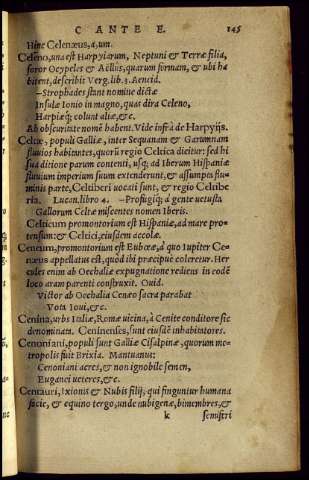 C ANTE E. 145
Hinc Celenæus, a, um.
Celeno, una est Harpyiarum, Neptuni & Terræ filia,
soror Ocypetes & Aëllus, quarum formam, & ubi ha
bitent, describit Verg. lib. 3. Aeneid.
—Strophades stant nomine dictæ
Insulæ Ionio in magno, quas dira Celeno,
Harpiæq; colunt aliæ, &c.
Ab obscuritate nomē habent. Vide infrà de Harpyijs.
Celtæ, populi Galliæ, inter Sequanam & Garumnam
fluvios habitantes, querū regio Celtica dicitur: sed hi
sua ditione parum contenti, usq; ad Iberum Hispaniæ
fluvium imperium suum extenderunt, & assumpto flu-
minis parte, Celtiberi uocati sunt, & regio Celtibe
ria. Lucan. libro 4. —Profugiq; à gente uetusta
Gallorum Celtæ miscentes nomen Iberis.
Celticum promontorium est Hispaniæ, ad mare pro-
tensum: & Celtici, eiusdem accolæ.
Cenæum, promontorium est Eubœæ, à quo Iupiter Ce-
næus appellatus est, quòd ibi præcipue coleretur. Her
cules enim ab Oechaliæ expugnatione rediens in eodē
loco aram parenti construxit. Ouid.
Victor ab Oechalia Cenæo sacra parabat
Vota Ioui, &c.
Cenina, urbs Italiæ, Romæ uicina, à Cenite conditore sic
denominata. Ceninenses, sunt eiusdē inhabitatores.
Cenomani, populi sunt Galliæ Cisalpinæ, quorum me-
tropolis fuit Brixia. Mantuanus:
Cenomani acres, & non ignobile semen,
Euganei ueteres, &c.
Centauri, Ixionis & Nubis filij, qui finguntur humana
facie, & equino tergo, unde nubigenæ, bimembres, &
k semiferi